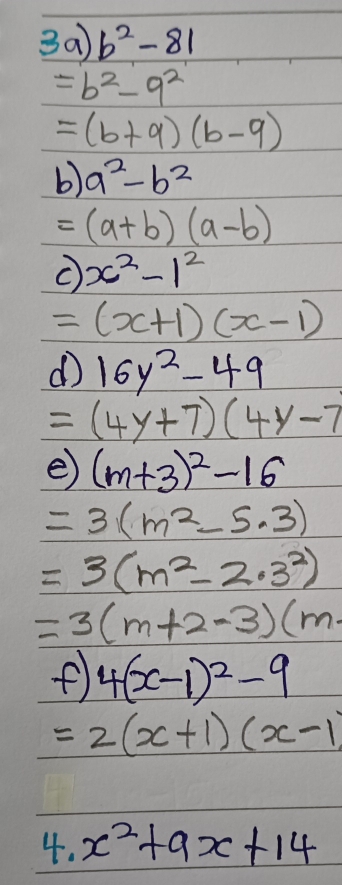 3a) b² - 81
= b² - 9²
= (b+9) (b-9)
b) a² - b²
= (a+b) (a-b)
c) x² - 1²
= (x+1) (x-1)
d) 16y² - 49
= (4y+7) (4y-7
e) (m+3)² - 16
= 3(m² - 5.3)
= 3(m² - 2.3²)
= 3(m+2-3) (m-
f) 4(x-1)² - 9
= 2(x+1) (x-1)
4. x² + 9x + 14